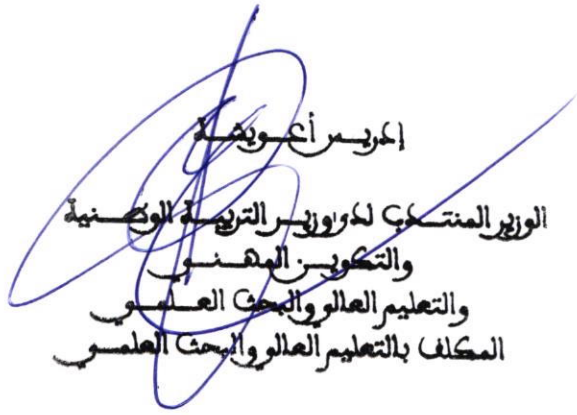 إدريس أعويشة
الوزير المنتدب لدى وزير التربية الوطنية
والتكوين المهني
والتعليم العالي والبحث العلمي
المكلف بالتعليم العالي والبحث العلمي